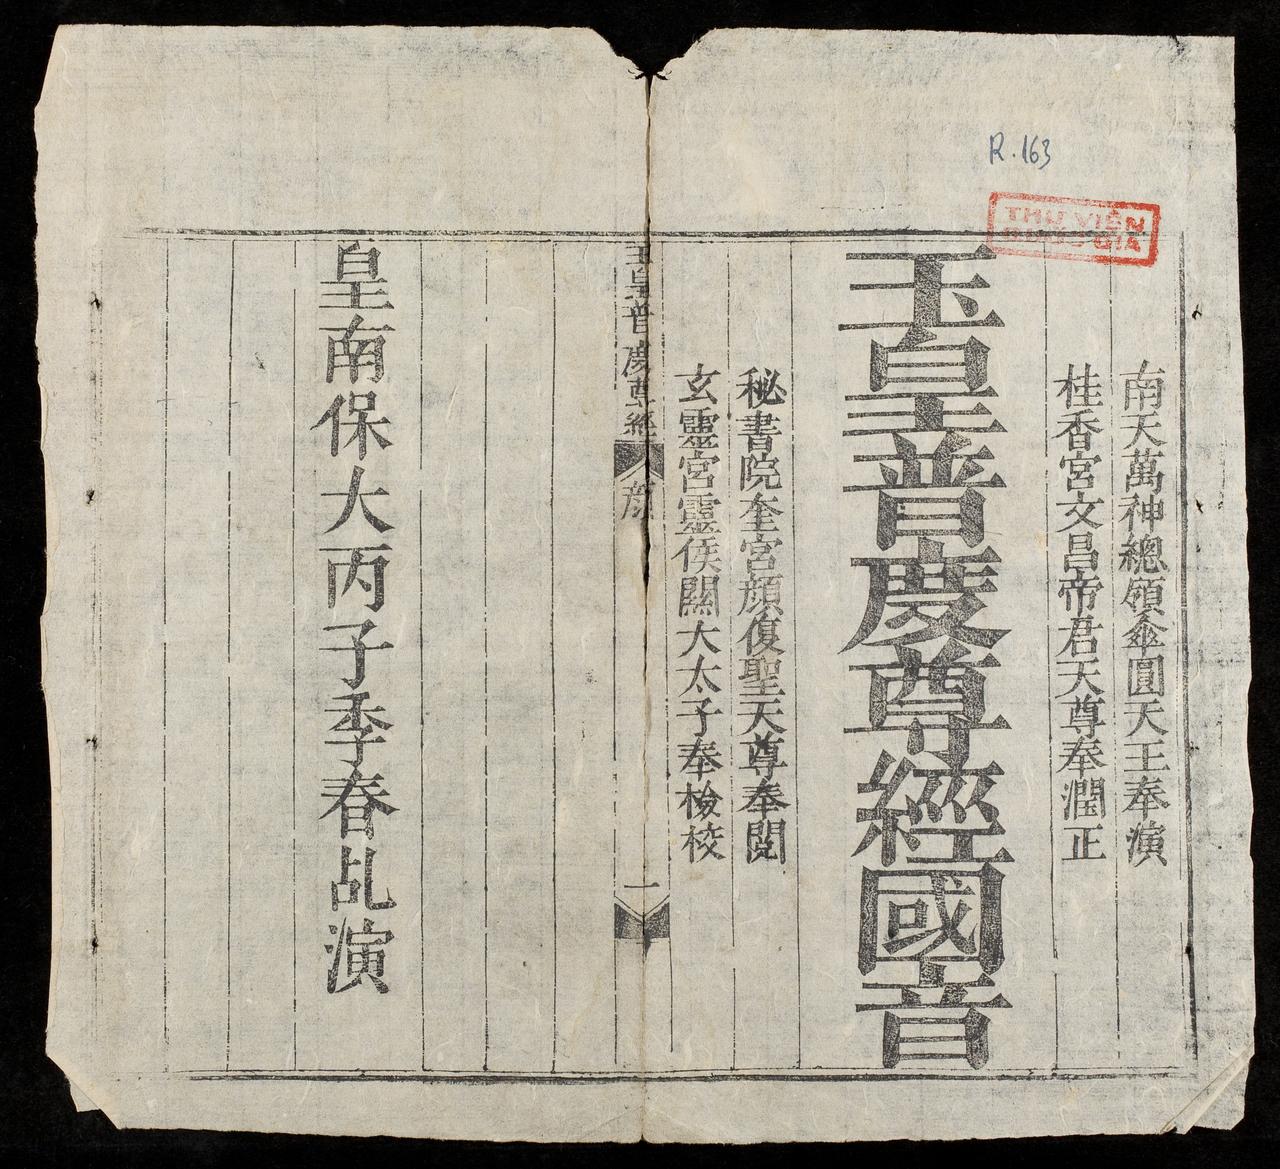 R.163
THƯ VIỆN
QUỐC GIA
南天萬神總領傘圓天王奉演
桂香宮文昌帝君天尊奉潤正
玉皇普慶尊經國音
秘書院奎宮顔復聖天尊奉閱
玄靈宮靈侯關大太子奉檢校
玉皇普慶尊經
顔
一
皇南保大丙子季春乩演